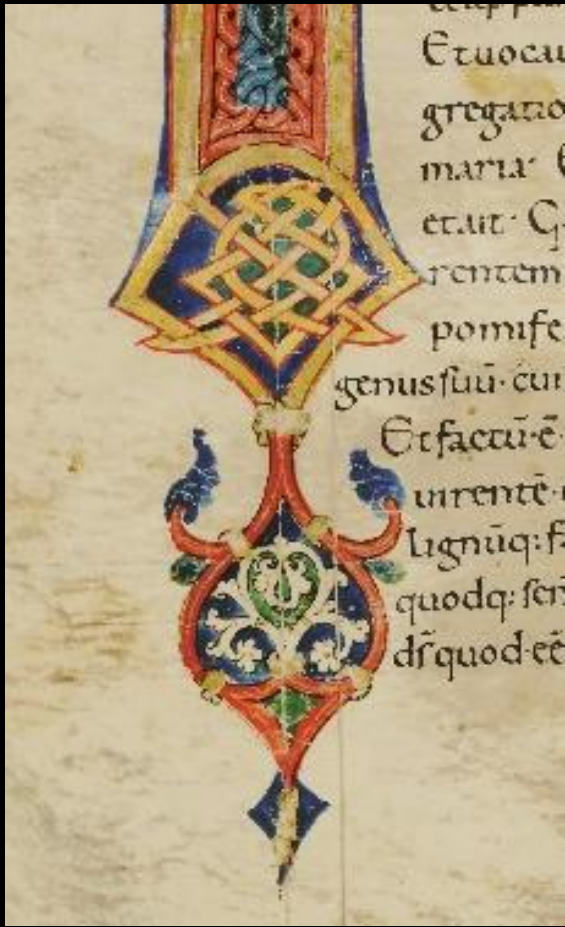 Et uocau
gregatio
maria· E
et ait· G
rentem
pomife
genus suū· cui
Et factū·ē·
uirentē·
lignūq: f
quodq: sem
ds̄ quod·eē